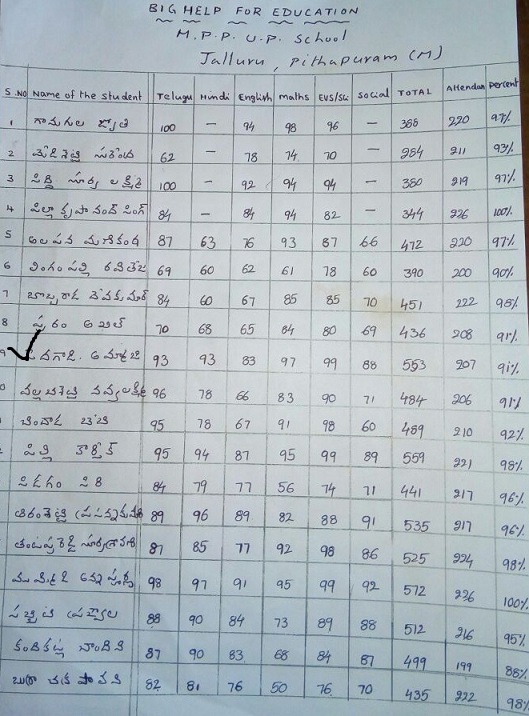 BIG HELP FOR EDUCATION
M.P.P. U.P. School
Jalluru, Pithapuram (M)
S.NO Name of the student Telugu Hindi English maths EVS/Sci social TOTAL Attendan percent
1 గానుగుల జ్యోతి 100 — 94 98 96 — 388 220 97%
2 62 — 78 74 70 — 284 211 93%
3 సూర్య లక్ష్మి 100 — 92 94 94 — 380 219 97%
4 పిల్లా కృపానంద్ సింగ్ 84 — 84 94 82 — 344 226 100%
5 మణికంఠ 87 63 76 93 87 66 472 220 97%
6 లింగంపల్లి రవితేజ 69 60 62 61 78 60 390 200 90%
7 దేవకుమార్ 84 60 67 85 85 70 451 222 98%
8 అఖిల్ 70 68 65 84 80 69 436 208 91%
9 93 93 83 97 99 88 553 207 91%
0 నవ్యలక్ష్మి 96 78 66 83 90 71 484 206 91%
95 78 67 91 98 60 489 210 92%
పిల్లి కార్తీక్ 95 94 87 95 99 89 559 221 98%
84 79 77 56 74 71 441 217 96%
89 96 89 82 88 91 535 217 96%
87 85 77 92 98 86 525 224 98%
98 97 91 95 99 92 572 226 100%
88 90 84 73 89 88 512 216 95%
చాందిని 87 90 83 68 84 87 499 199 88%
పావని 82 81 76 50 76 70 435 222 98%